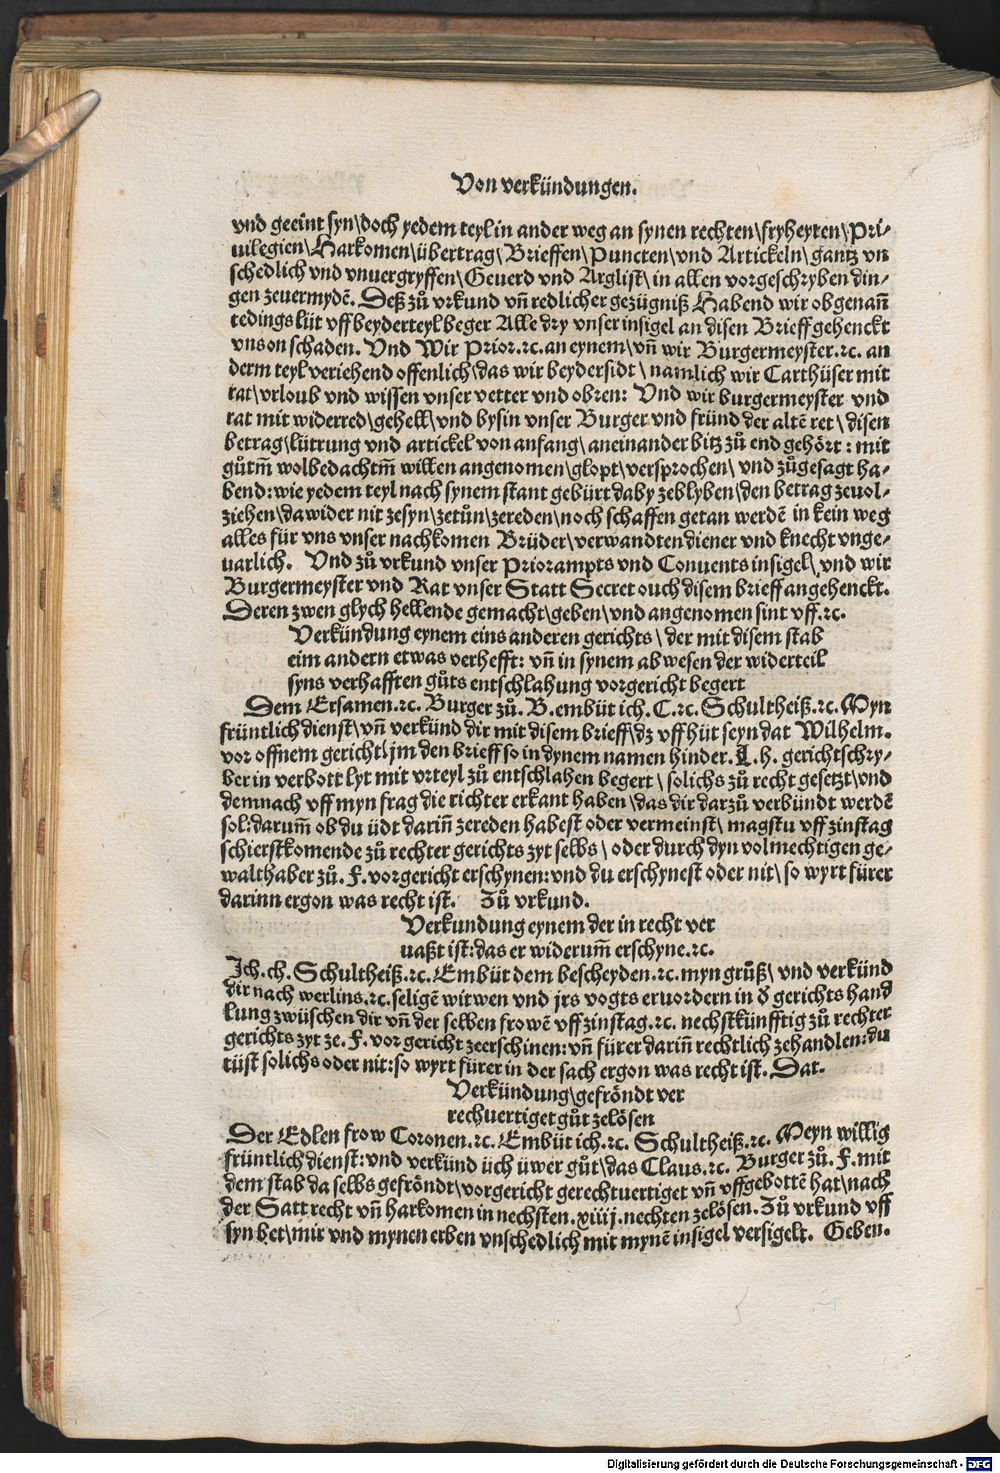 Von verkündungen.
vnd geeint syn\doch yedem teyl in ander weg an synen rechten\fryheyten\Pri-
uilegien\Harkomen\übertrag\Brieffen\Puncten\vnd Artickeln\gantz vn
schedlich vnd vnuergryffen\Geuerd vnd Arglist\in allen vorgeschryben din-
gen zeuermydẽ. Deß zů vrkund vñ redlicher gezügniß Habend wir obgenañ
tedings lüt vff beyder teyl beger Alle dry vnser insigel an disen Brieff gehenckt
vns on schaden. Vnd Wir Prior.ꝛc.an eynem\vñ wir Burgermeyster.ꝛc. an
derm teyl veriehend offenlich\das wir beydersidt\namlich wir Carthüser mit
rat\vrloub vnd wissen vnser vetter vnd obren: Vnd wir burgermeyster vnd
rat mit widerred\gehell\vnd bysin vnser Burger vnd fründ der altẽ ret\disen
betrag\lütrung vnd artickel von anfang\aneinander bitz zů end gehört: mit
gůtm̃ wolbedachtm̃ willen angenomen\glopt\versprochen\ vnd zůgesagt ha-
bend:wie yedem teyl nach synem stant gebürt daby zeblyben\den betrag zeuol-
ziehen\da wider nit zesyn\zetůn\zereden\noch schaffen getan werdẽ in kein weg
alles für vns vnser nachkomen Brüder\verwandten diener vnd knecht vnge-
uarlich. Vnd zů vrkund vnser Priorampts vnd Conuents insigel\ vnd wir
Burgermeyster vnd Rat vnser Statt Secret ouch disem brieff angehenckt.
Deren zwen glych hellende gemacht\geben\vnd angenomen sint vff.ꝛc.
Verkündung eynem eins anderen gerichts\ der mit disem stab
eim andern etwas verhefft: vñ in synem abwesen der widerteil
syns verhafften gůts entschlahung vorgericht begert
Dem Ersamen.ꝛc. Burger zů. B.embüt ich. C.ꝛc. Schultheiß.ꝛc. Myn
früntlich dienst\vñ verkünd dir mit disem brieff\dz vff hüt seyn dat Wilhelm.
vor offnem gericht\jm den brieff so in dynem namen hinder. L.h. gerichtschry-
ber in verbott lyt mit vrteyl zů entschlahen begert\ solichs zů recht gesetzt\vnd
demnach vff myn frag die richter erkant haben\das dir darzů verbündt werdẽ
sol:darum̃ ob du üdt dariñ zereden habest oder vermeinst\ magstu vff zinstag
schierstkomende zů rechter gerichts zyt selbs\ oder durch dyn volmechtigen ge-
walthaber zů. F.vorgericht erschynen:vnd du erschynest oder nit\so wyrt fürer
darinn ergon was recht ist. Zů vrkund.
Verkundung eynem der in recht ver
uaßt ist:das er widerum̃ erschyne.ꝛc.
Ich.ch. Schultheiß.ꝛc. Embüt dem bescheyden.ꝛc. myn grůß\ vnd verkünd
dir nach werlins.ꝛc.seligẽ witwen vnd jrs vogts eruordern in ð gerichts hand
lung zwüschen dir vñ der selben frowẽ vff zinstag.ꝛc. nechstkünfftig zů rechter
gerichts zyt ze. F. vor gericht zeerschinen:vñ fürer dariñ rechtlich zehandlen:du
tüst solichs oder nit:so wyrt fürer in der sach ergon was recht ist. Dat.
Verkündung\gefröndt ver
rechuertiget gůt zelösen
Der Edlen frow Coronen.ꝛc. Embüt ich.ꝛc. Schultheiß.ꝛc. Meyn willig
früntlich dienst:vnd verkünd üch üwer gůt\das Claus.ꝛc. Burger zů. F.mit
dem stab da selbs gefröndt\vorgericht gerechtuertiget vñ vffgebottẽ hat\nach
der Satt recht vñ harkomen in nechsten.xiiij.nechten zelösen. Zů vrkund vff
syn bet\mir vnd mynen erben vnschedlich mit mynẽ insigel versigelt. Geben.
Digitalisierung gefördert durch die Deutsche Forschungsgemeinschaft - DFG